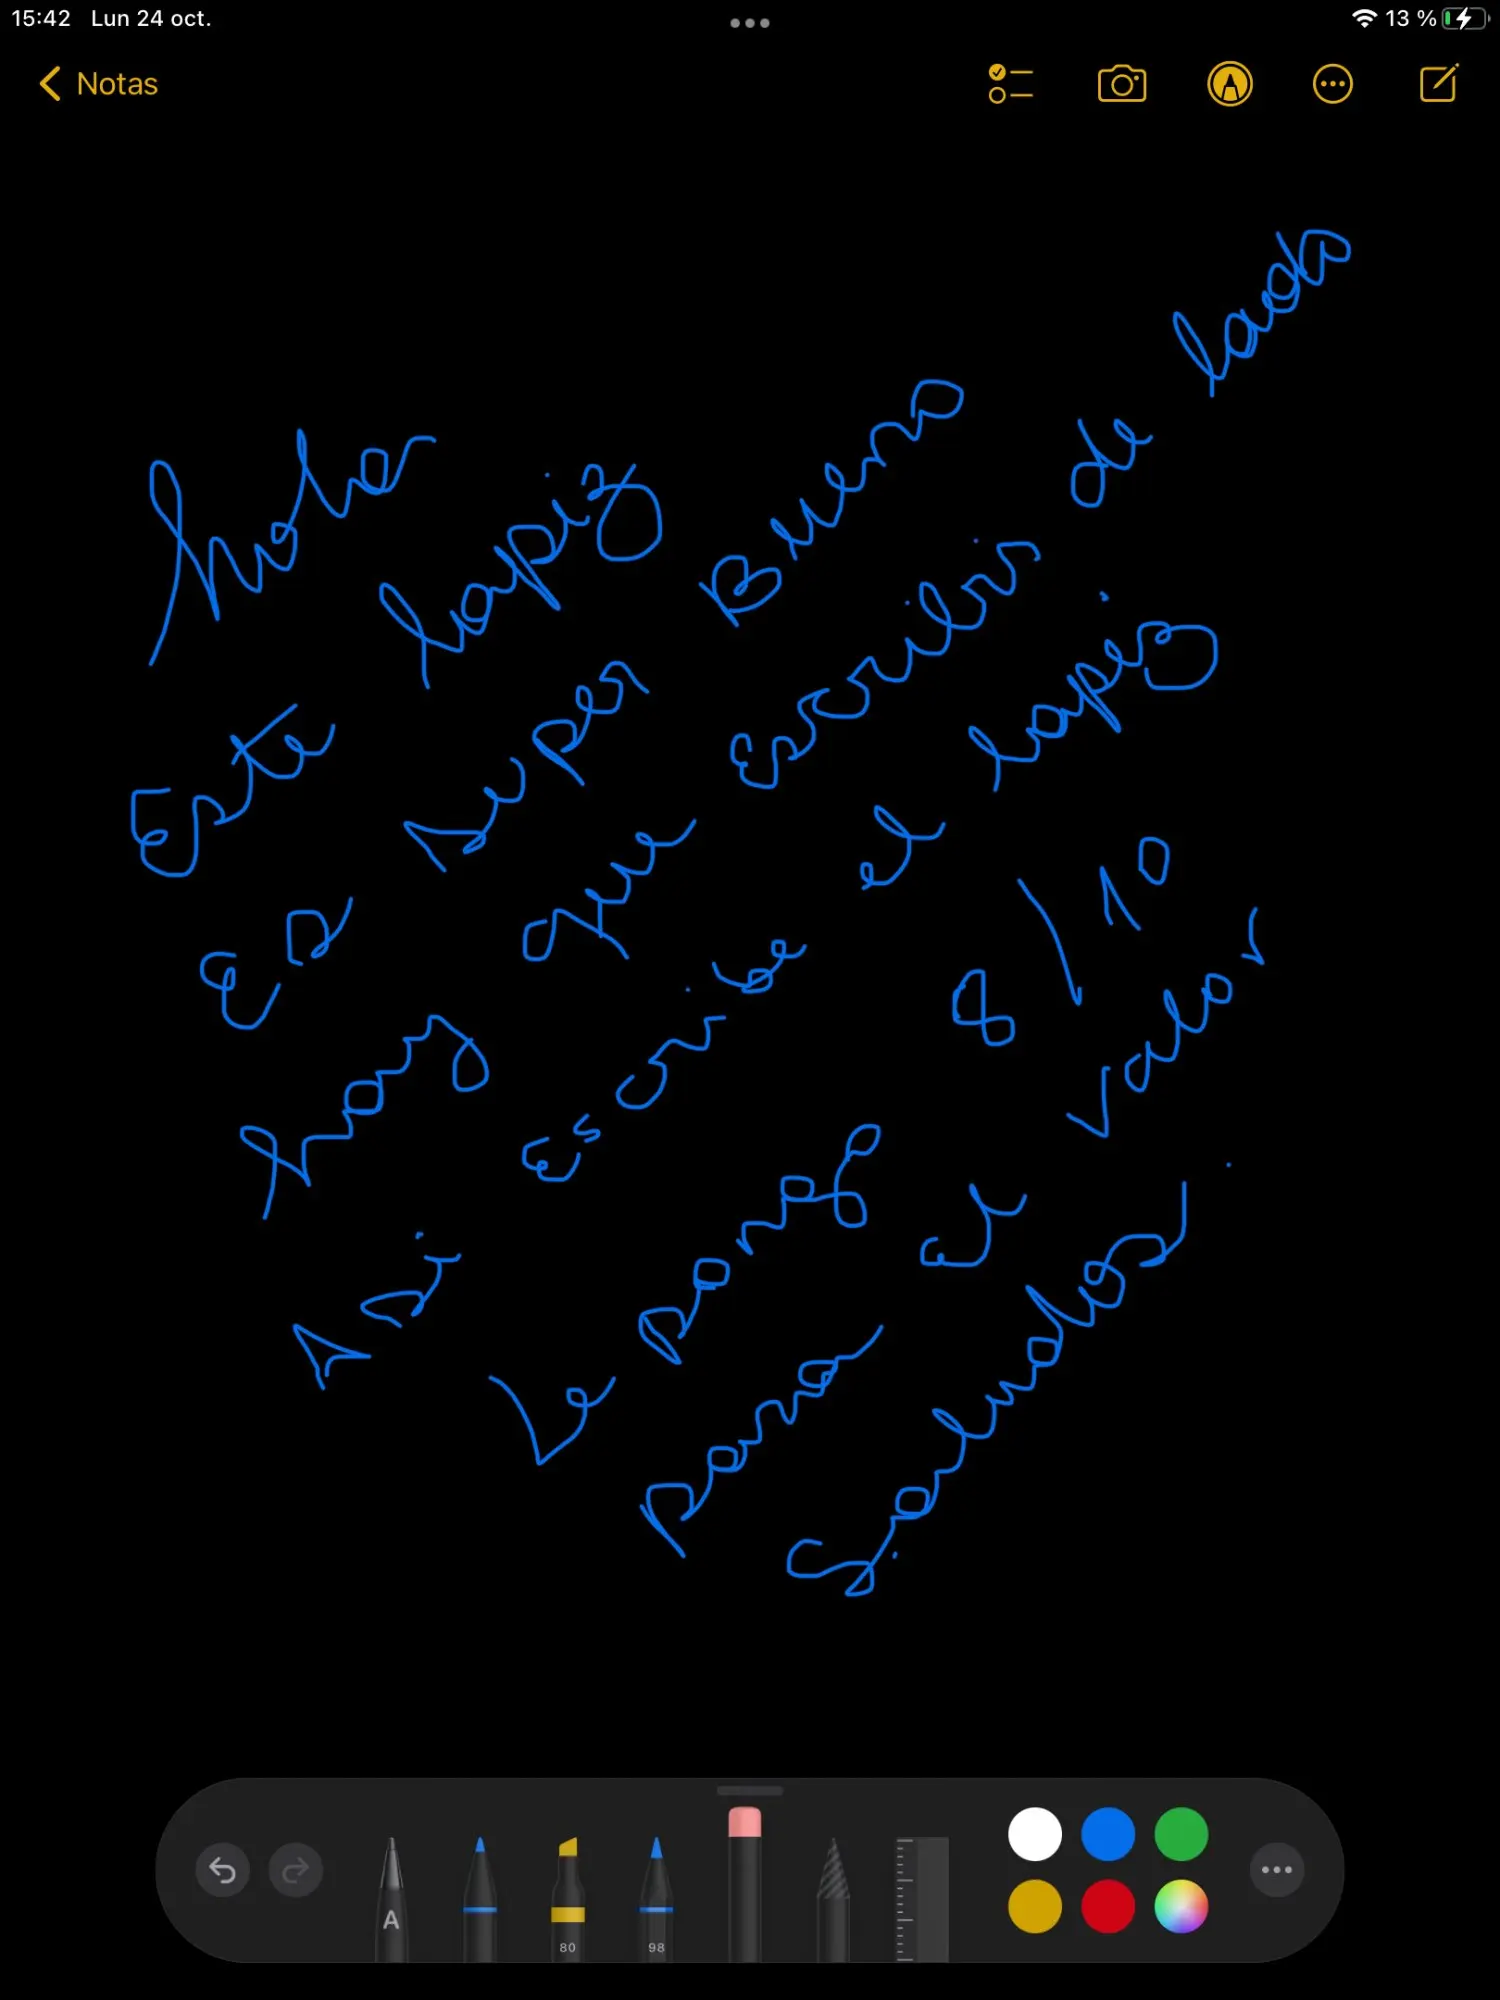 15:42 Lun 24 oct.
13 %
Notas
hola
Este lapiz
Es super Bueno
hay que Escribir de lado
Asi Escribe el lapiz
Le pongo 8/10
para El valor
Saludos.
A
80
98